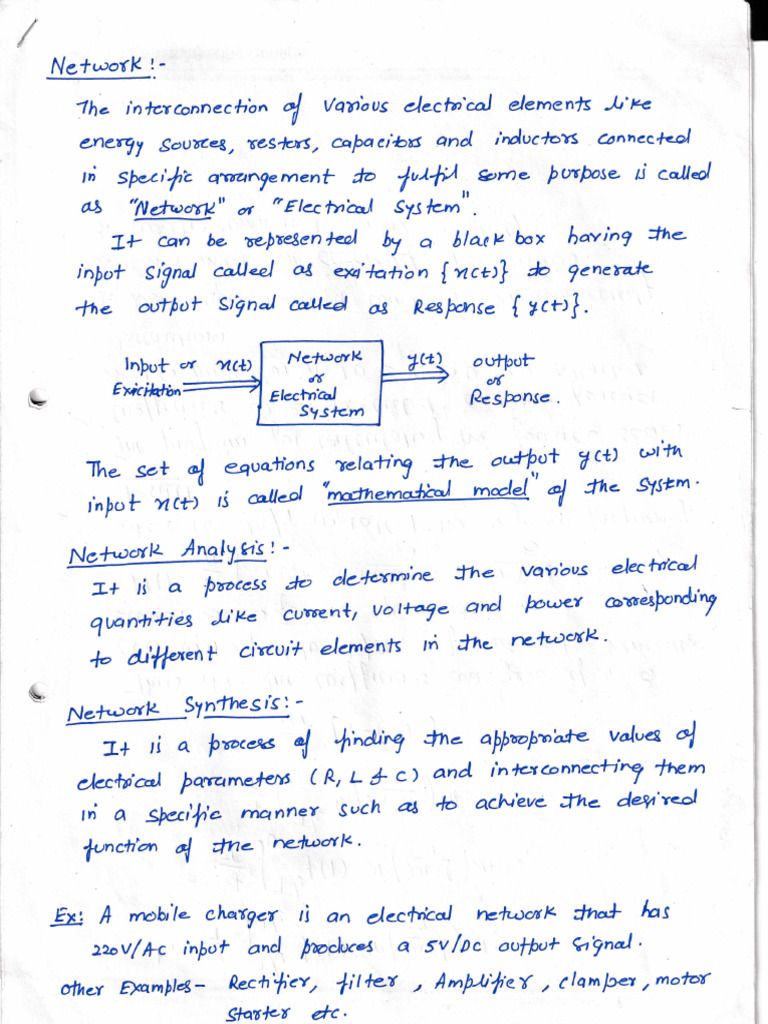 Network:-
The interconnection of various electrical elements like
energy sources, resters, capacitors and inductors connected
in specific arrangement to fulfil some purpose is called
as "Network" or "Electrical System".
It can be represented by a black box having the
input signal called as exitation {x(t)} to generate
the output signal called as Response {y(t)}.
Input or x(t) Network y(t) output
or or
Exicitation Electrical Response.
System
The set of equations relating the output y(t) with
input x(t) is called "mathematical model" of the system.
Network Analysis:-
It is a process to determine the various electrical
quantities like current, voltage and power corresponding
to different circuit elements in the network.
Network Synthesis:-
It is a process of finding the appropriate values of
electrical parameters (R, L & C) and interconnecting them
in a specific manner such as to achieve the desired
function of the network.
Ex: A mobile charger is an electrical network that has
220V/AC input and produces a 5V/DC output signal.
Other Examples- Rectifier, filter, Amplifier, clamper, motor
starter etc.